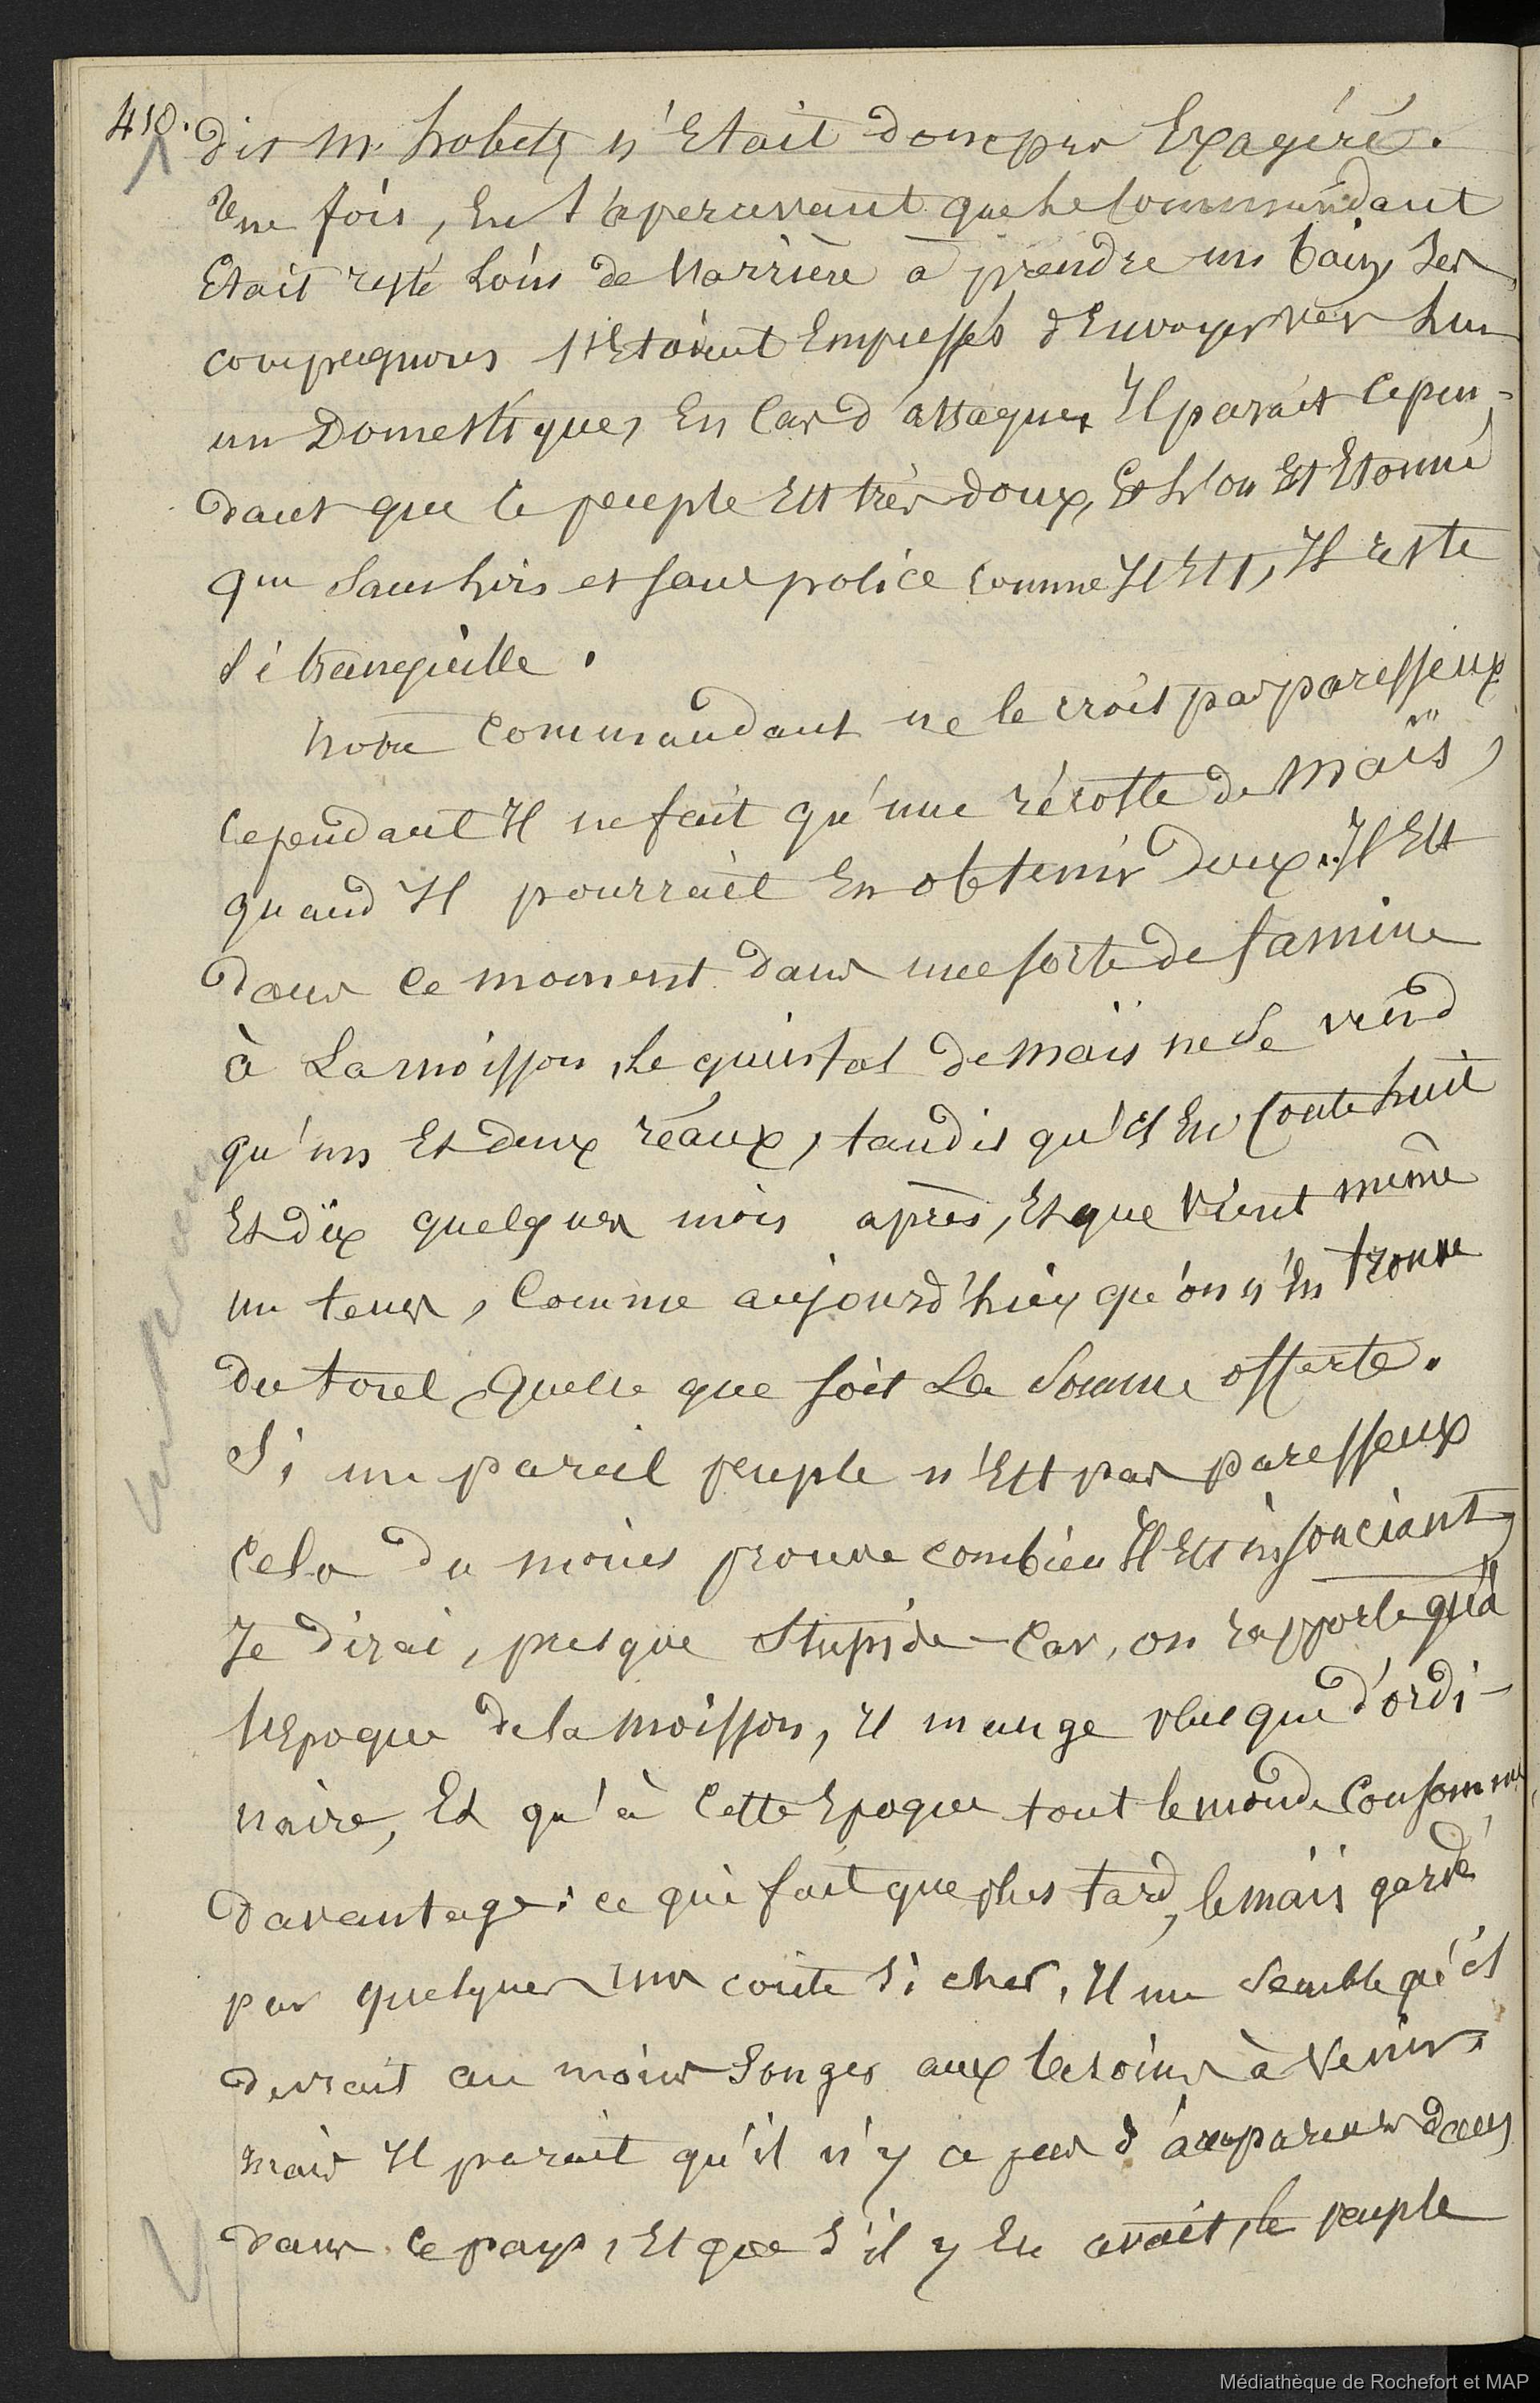 410.
dit M. n'Etait donc pas Exagéré.
Une fois, En s'apercevant que Le Commandant
Etait resté Loin de L'arrière à prendre un bain, Ses
compagnons s'Etaient Empressés d'Envoyer vers Lui
un Domestique, En Cas d'attaque, Il parait Cepen-
dant que le peuple Est très doux, Et L'on Est Etonné
que Sans Lois et Sans police comme Il Est, Il reste
Si tranquille.
Notre Commandant ne le croit pas paresseux
Cependant Il ne fait qu'une récolte de Maïs,
quand Il pourrait En obtenir Deux. Il Est
dans ce moment dans une sorte de famine
à La moisson, Le quintal de maïs ne Se vend
qu'un Et deux réaux, tandis qu'il En Coute huit
Et dix quelques mois après, Et que Vient même
un tems, Comme aujourd'hui, qu'on n'En trouve
du tout, Quelle que soit La Somme offerte.
Si un pareil peuple n'Est pas paresseux
Cela du moins prouve combien Il Est insouciant,
Je dirai, presque Stupide - Car, on rapporte qu'à
L'Epoque de la moisson, il mange plus que d'ordi-
naire, Et qu'à Cette Epoque tout le monde Consomme
davantage: ce qui fait que plus tard, le maïs gardé
par quelques uns coute Si cher, Il me Semble qu'il
devrait au moins Songer aux besoins à Venir,
mais Il parait qu'il n'y a pas d'accapareurs dans
dans ce pays, Et que S'il y En avait, le peuple
Médiathèque de Rochefort et MAP